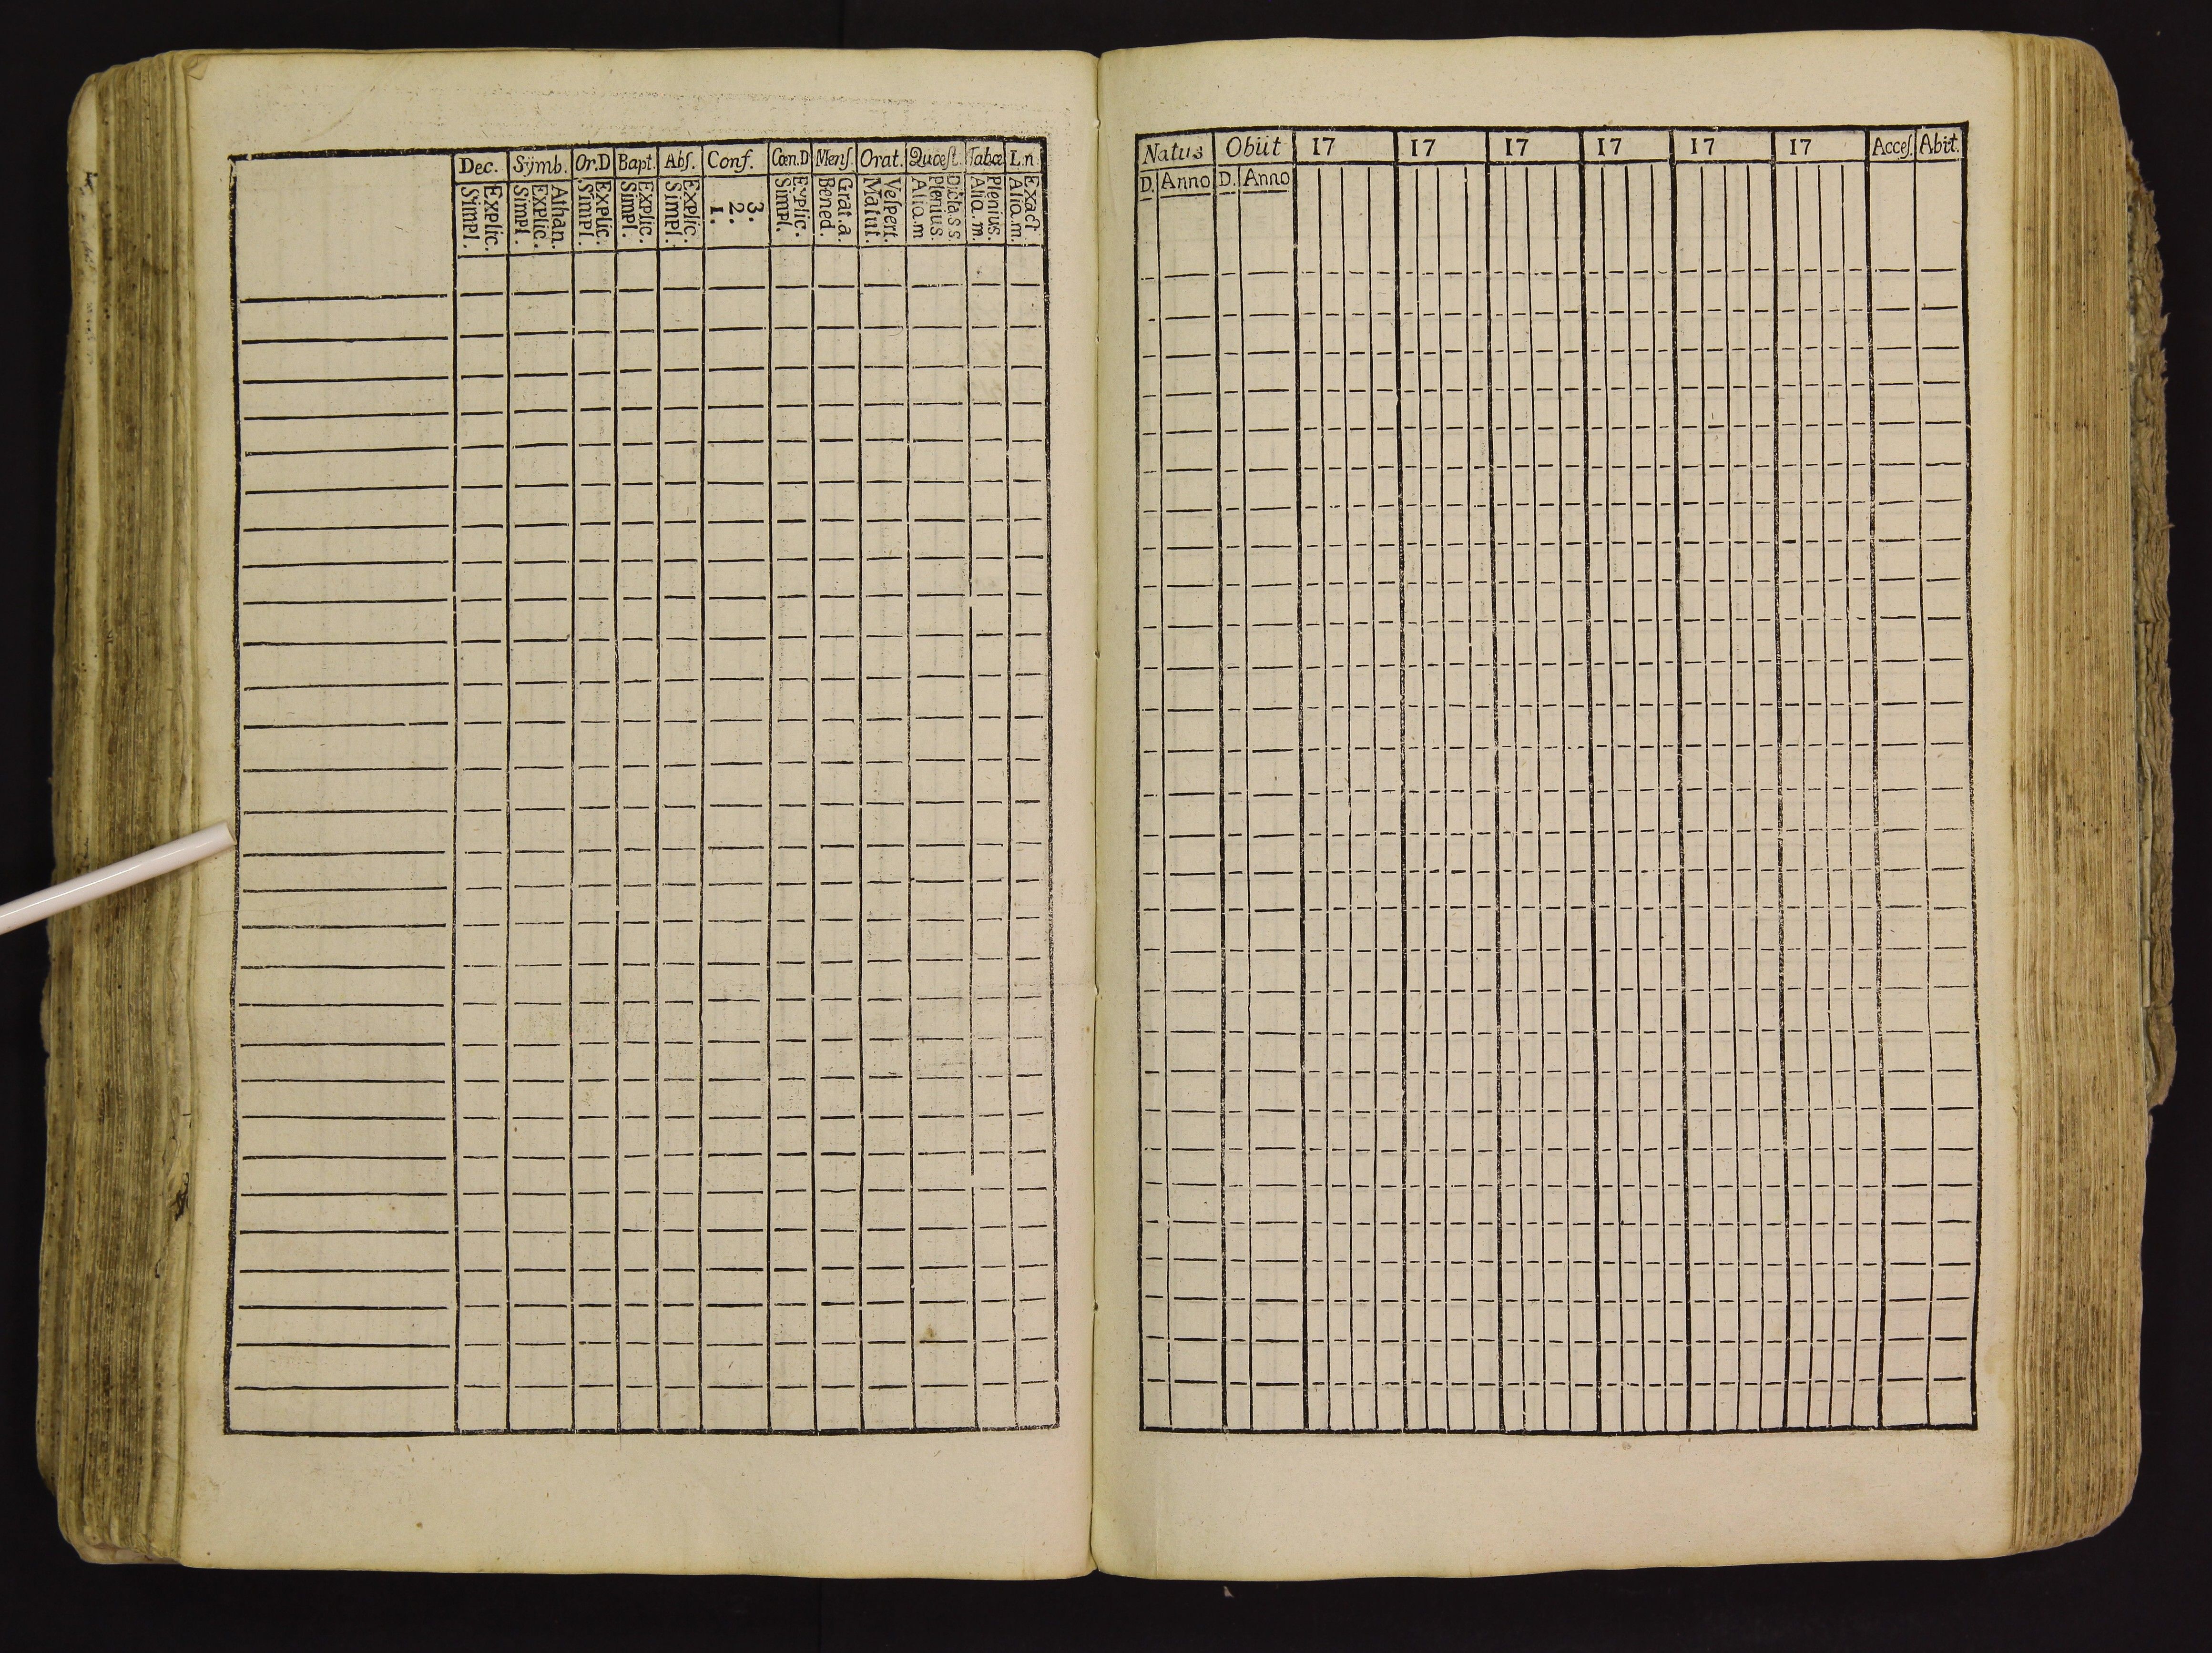 Dec. Sÿmb. Or.D Bapt. Abſ. Conf. Cœn.D Menſ. Orat. Quœſt. Tabœ L.n.
Explic.
Simpl.
Athan.
Explic.
Simpl.
Explic.
Simpl.
Explic.
Simpl.
Explic.
Simpl.
3.
2.
1.
Explic.
Simpl.
Grat.a.
Bened.
Veſpert.
Matut.
Dicta.s s.
Plenius.
Alia.m
Plenius.
Alia.m.
Exact
Alia.m.
Natus Obiit 17 17 17 17 17 17 Acceſ. Abit.
D. Anno D. Anno